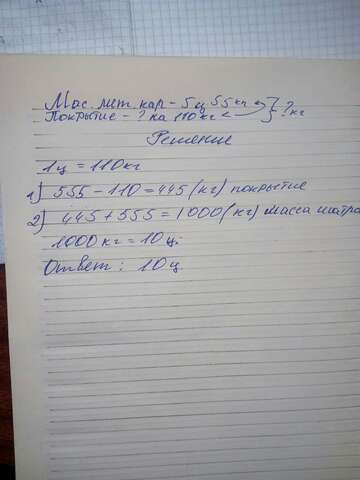 Мас. мет. кар – 5 ц 55 кг } ? кг
Покрытие – ? на 110 кг <
Решение
1 ц = 110 кг
1) 555 – 110 = 445 (кг) покрытие
2) 445 + 555 = 1000 (кг) масса шатра
1000 кг = 10 ц.
Ответ: 10 ц.